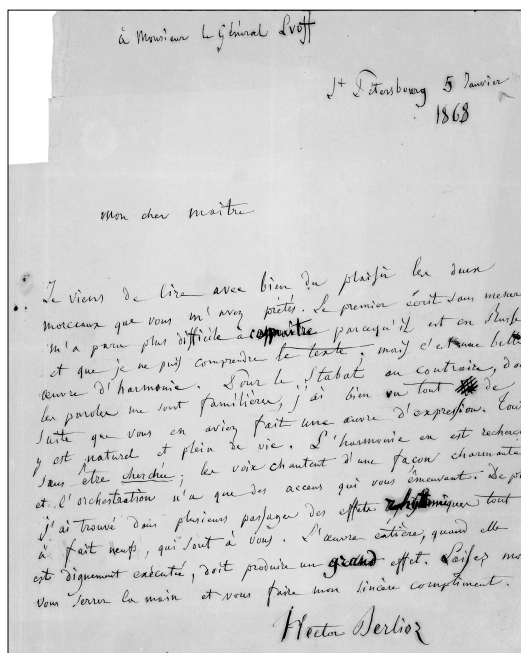 à Monsieur le Général Lvoff
St Pétersbourg 5 Janvier
1868
Mon cher maître
Je viens de lire avec bien du plaisir les deux
morceaux que vous m'avez prêtés. Le premier écrit sans mesure
m'a paru plus difficile à connaître parcequ'il est en
et que je ne puis comprendre le texte ; mais c'est une belle
œuvre d'harmonie. Pour le Stabat au contraire, dont
les paroles me sont familières, j'ai bien vu tout de
suite que vous en aviez fait une œuvre d'expression. Tout
y est naturel et plein de vie. L'harmonie en est recherchée
sans être cherchée ; les voix chantent d'une façon charmante
et l'orchestration n'a que des accens qui vous émeuvent. De
j'ai trouvé dans plusieurs passages des effets rhythmiques tout
à fait neufs, qui sont à vous. L'œuvre entière, quand elle
est dignement exécutée, doit produire un grand effet. Laissez moi
vous serrer la main et vous faire mon sincère compliment.
Hector Berlioz